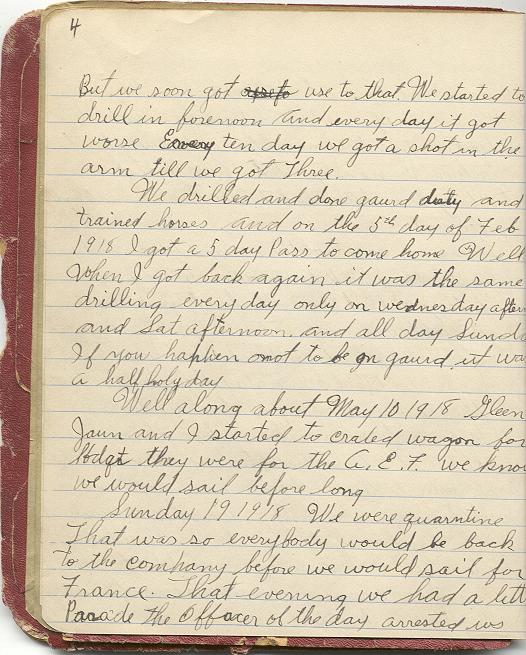 4
But we soon got use to that. We started to
drill in forenoon and every day it got
worse Every ten day we got a shot in the
arm till we got Three.
We drilled and done gaurd duty and
trained horses and on the 5th day of Feb
1918 I got a 5 day Pass to come home Well
when I got back again it was the same
drilling every day only on wednesday aftern
and Sat afternoon. and all day Sunda
If you happen not to be on gaurd it was
a half holy day
Well along about May 10 1918 Gleen
Jaun and I started to crated wagon for
they were for the A. E. F. we know
we would sail before long
Sunday 19 1918 We were quarntine
That was so everybody would be back
to the company before we would sail for
France. That evening we had a litt
Parade the Officer of the day arrested us